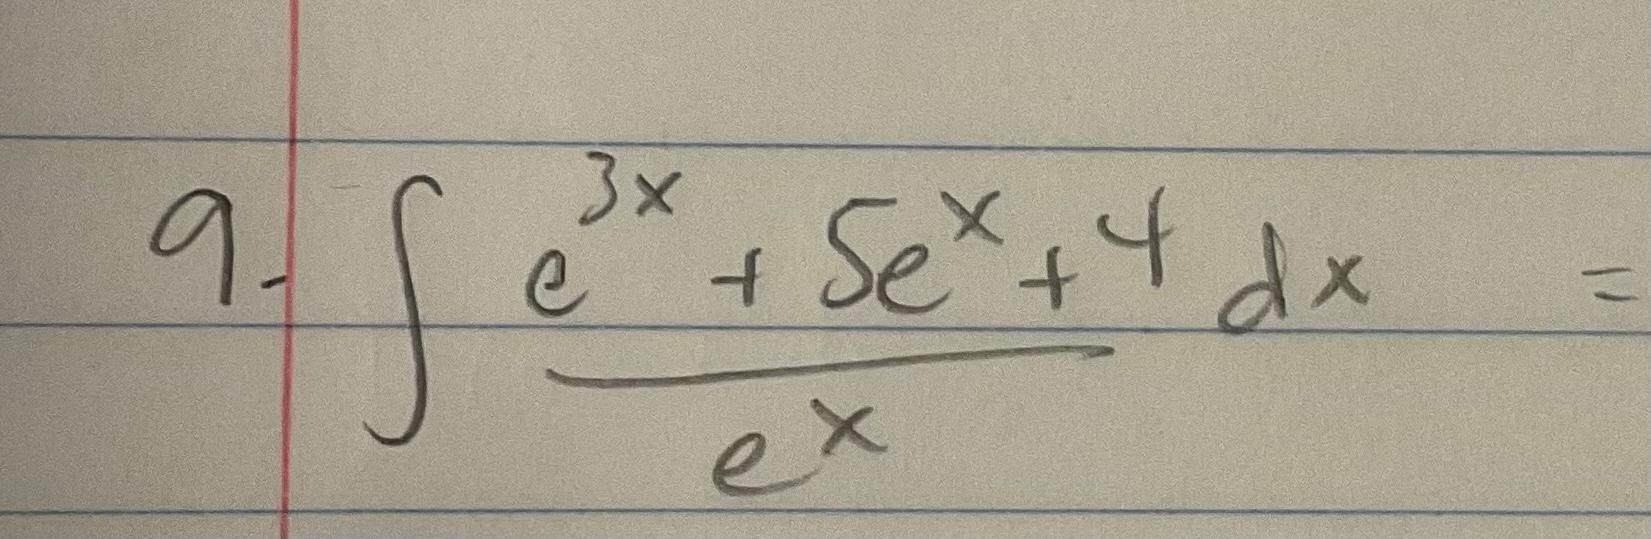 9. ∫ (e^{3x} + 5e^x + 4)/(e^x) dx =